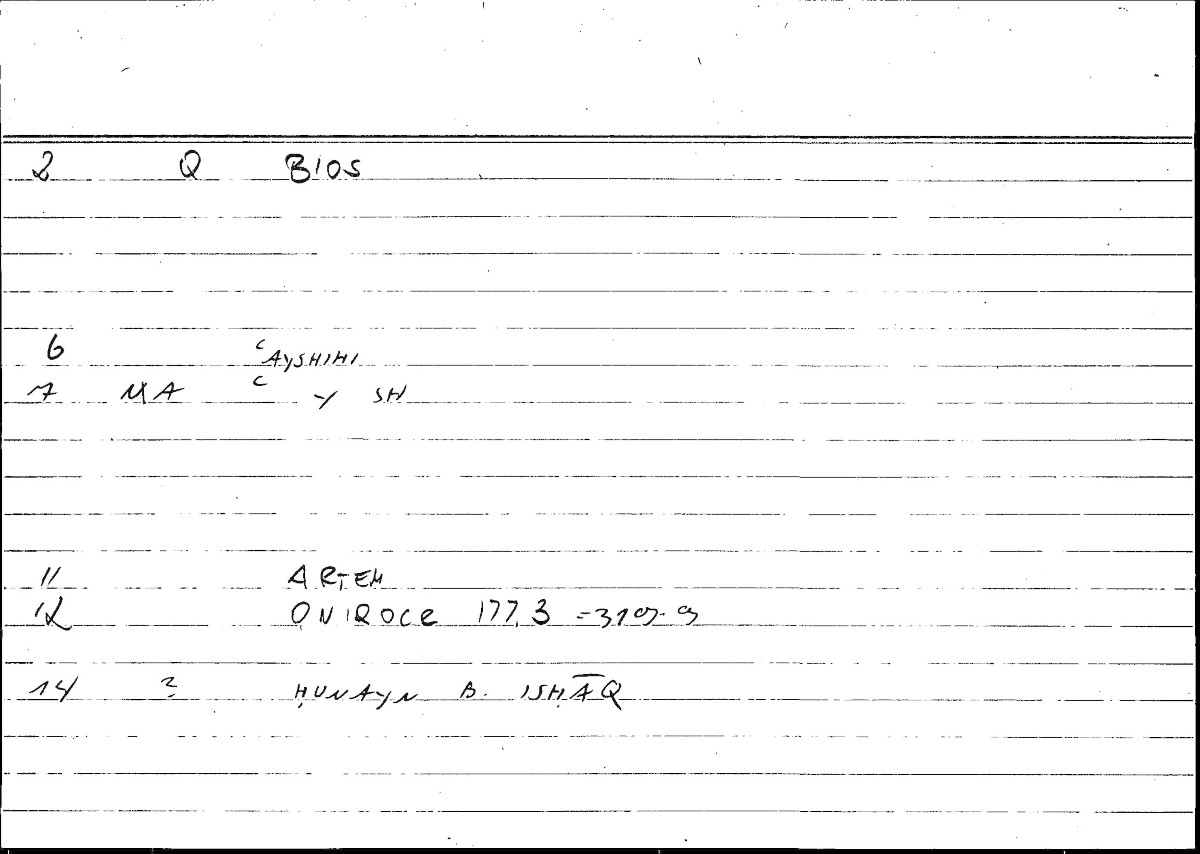 2 Q BIOS
6 ʿAYSHIHI
7 MA ʿ Y SH
11 ARTEM
12 ONIROCR 177,3
14 ? ḤUNAYN B. ISḤĀQ